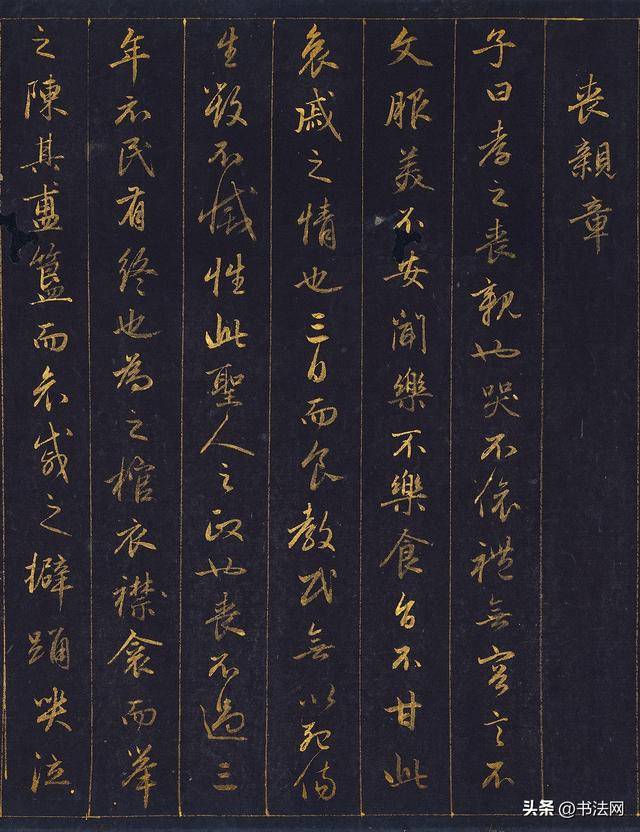 喪親章
子曰孝之喪親也哭不偯禮無容言不
文服美不安聞樂不樂食旨不甘此
哀戚之情也三日而食教民無以死傷
生毀不滅性此聖人之政也喪不過三
年示民有終也為之棺衣襟衾而舉
之陳其簠簋而哀慼之擗踊哭泣
头条 @书法网